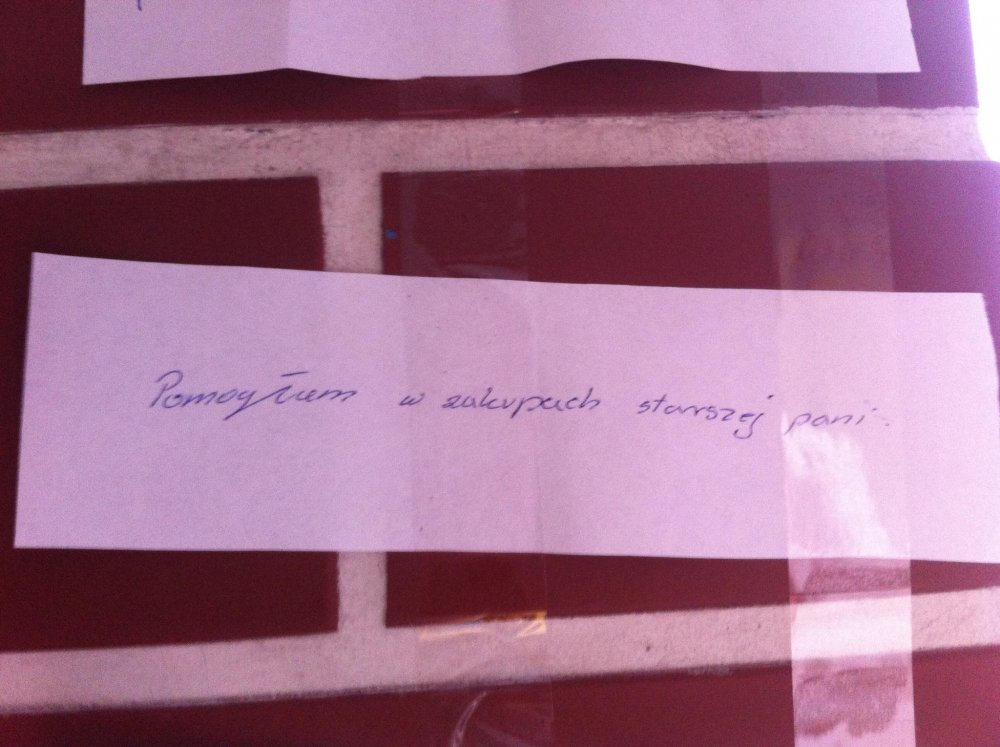 Pomogłam w zakupach starszej pani.